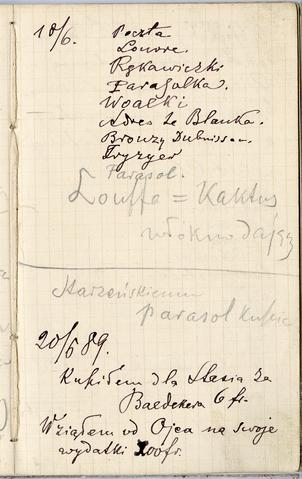 18/6. Poczta
Louvre.
Rękawiczki
Parasolka.
Woalki
Adres Le Blanka.
Bronzy Dubuisson.
Fryzyer
Parasol.
Louffa = Kaktus
włóknodajny
Starzeńskiemu
parasol kupić
20/6 89.
Kupiłem dla Stasia za
Baedekera 6 fr.
Wziąłem od Ojca na swoje
wydatki 200 fr.